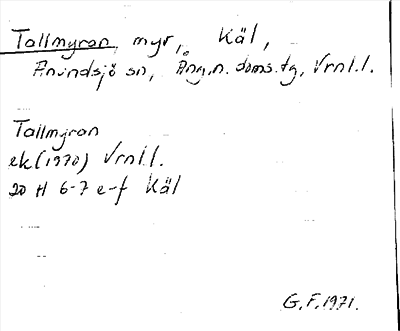 Tallmyran, myr, Käl,
Anundsjö sn, Ång.n. doms.tg, Vrnl.l.
Tallmyran
ek (1970) Vrnl.l.
20 H 6-7 e-f Käl
G.F. 1971.